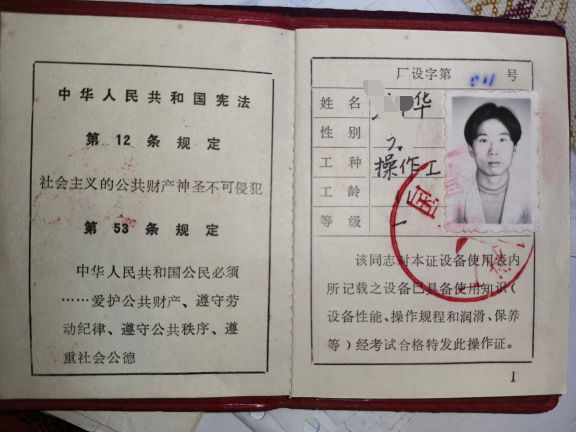 中华人民共和国宪法
第12条规定
社会主义的公共财产神圣不可侵犯
第53条规定
中华人民共和国公民必须
……爱护公共财产、遵守劳
动纪律、遵守公共秩序、遵
重社会公德
厂设字第 号
姓名 华
性别
工种 操作工
工龄
等级
该同志对本证设备使用表内
所记载之设备已具备使用知识（
设备性能、操作规程和润滑、保养
等）经考试合格特发此操作证。
1